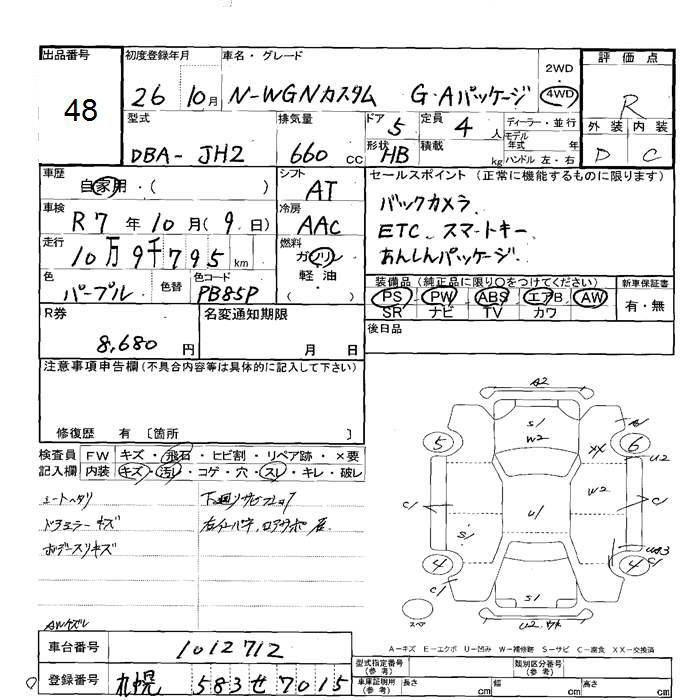 出品番号
48
初度登録年月
26 10月
車名・グレード
N-WGNカスタム G・Aパッケージ
2WD
4WD
評価点
R
外装 内装
D C
型式
DBA-JH2
排気量
660 cc
ドア 5
形状 HB
定員 4 人
積載 kg
ディーラー・並行
モデル年式 年式
ハンドル 左・右
車歴
自家用・( )
シフト
AT
車検
R7年10月(9日)
冷房
AAC
走行
10万9千795 km
燃料
ガソリン
軽油
( )
色
パープル
色替
色コード
PB85P
セールスポイント (正常に機能するものに限ります)
バックカメラ、
ETC、スマートキー、
あんしんパッケージ、
装備品 (純正品に限り○をつけてください)
PS PW ABS エアB AW
SR ナビ TV カワ
新車保証書
有・無
R券
8,680 円
名変通知期限
月 日
後日品
注意事項申告欄 (不具合内容等は具体的に記入して下さい)
修復歴 有 〔箇所 〕
検査員
記入欄
FW キズ・飛石・ヒビ割・リペア跡・×要
内装 キズ・汚れ・コゲ・穴・スレ・キレ・破レ
シートヘタリ
ドアミラーキズ
ボデースリキズ
AWキズレ
A2
S1
W2
A1
XX
5
6
U2
W2
C1
U1
C1
S1
4
4
C1
C1
S1
スペア
A-キズ E-エクボ U-凹み W-補修跡 S-サビ C-腐食 XX-交換済
車台番号
1012712
登録番号
札幌 583せ7015
型式指定番号
(参考)
類別区分番号
(参考)
車庫証明用
(参考)
長さ cm
幅 cm
高さ cm